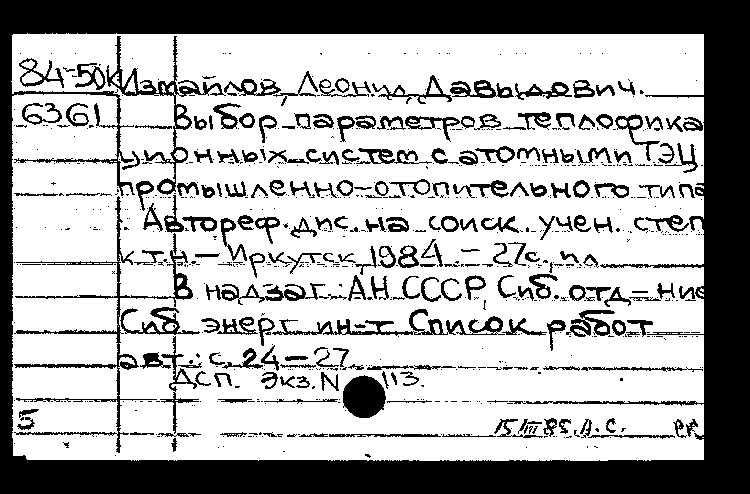 84-50к Измайлов, Леонид Давыдович.
6361 Выбор параметров теплофика
ционных систем с атомными ТЭЦ
промышленно-отопительного типа
. Автореф. дис. на соиск. учен. степ
к.т.н. — Иркутск, 1984. — 27с., ил
В надзаг.: АН СССР, Сиб. отд-ние
Сиб. энерг. ин-т. Список работ
авт.: с. 24-27
ДСП. Экз. N 113.
5 15.III 85. А.С. РК